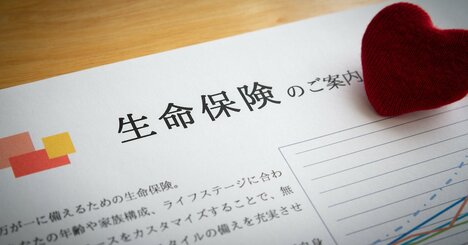 生命保険のご案内
万が一に備えるための生命保険。
なたの年齢や家族構成、ライフステージに合わ
スをカスタマイズすることで、無
タイルの備えを充実させ